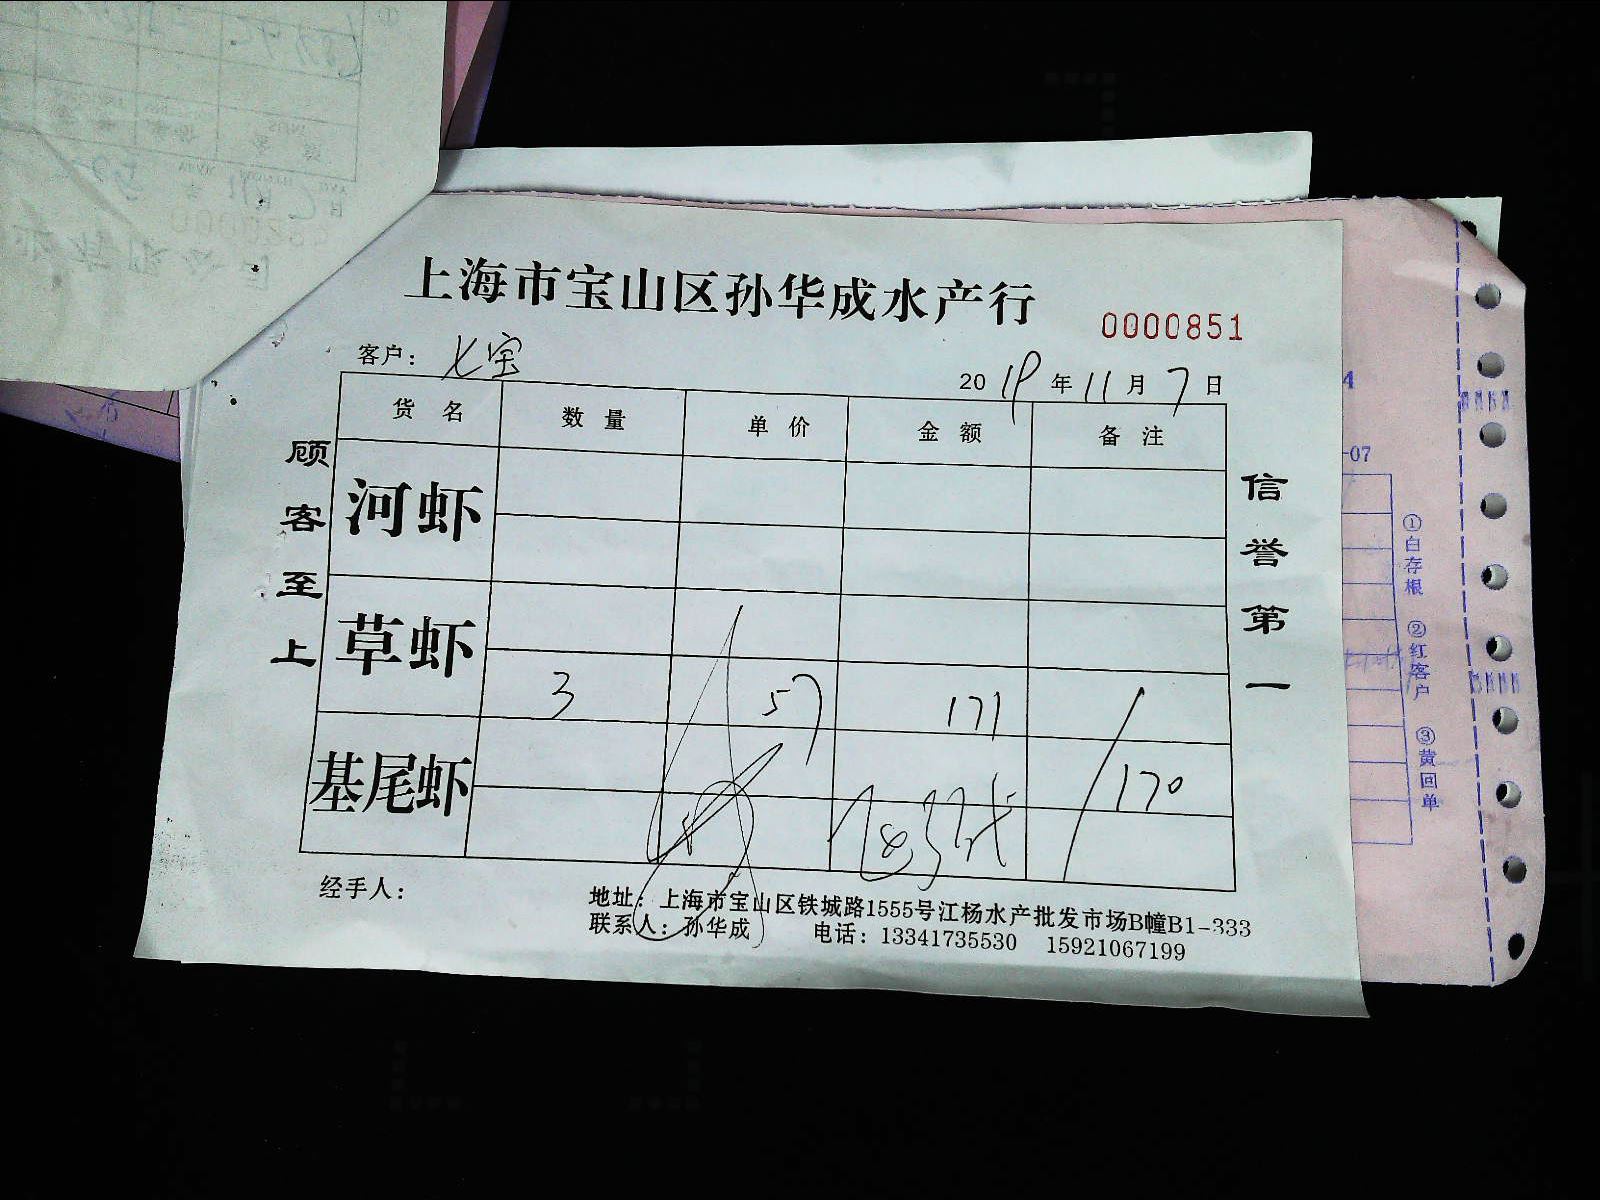 上海市宝山区孙华成水产行
0000851
客户：七宝
2019年11月7日
货名 数量 单价 金额 备注
河虾
草虾
3 57 171
基尾虾
170
顾客至上
信誉第一
经手人：
地址：上海市宝山区铁城路1555号江杨水产批发市场B幢B1-333
联系人：孙华成 电话：13341735530 15921067199
4
-07
①白存根 ②红客户 ③黄回单